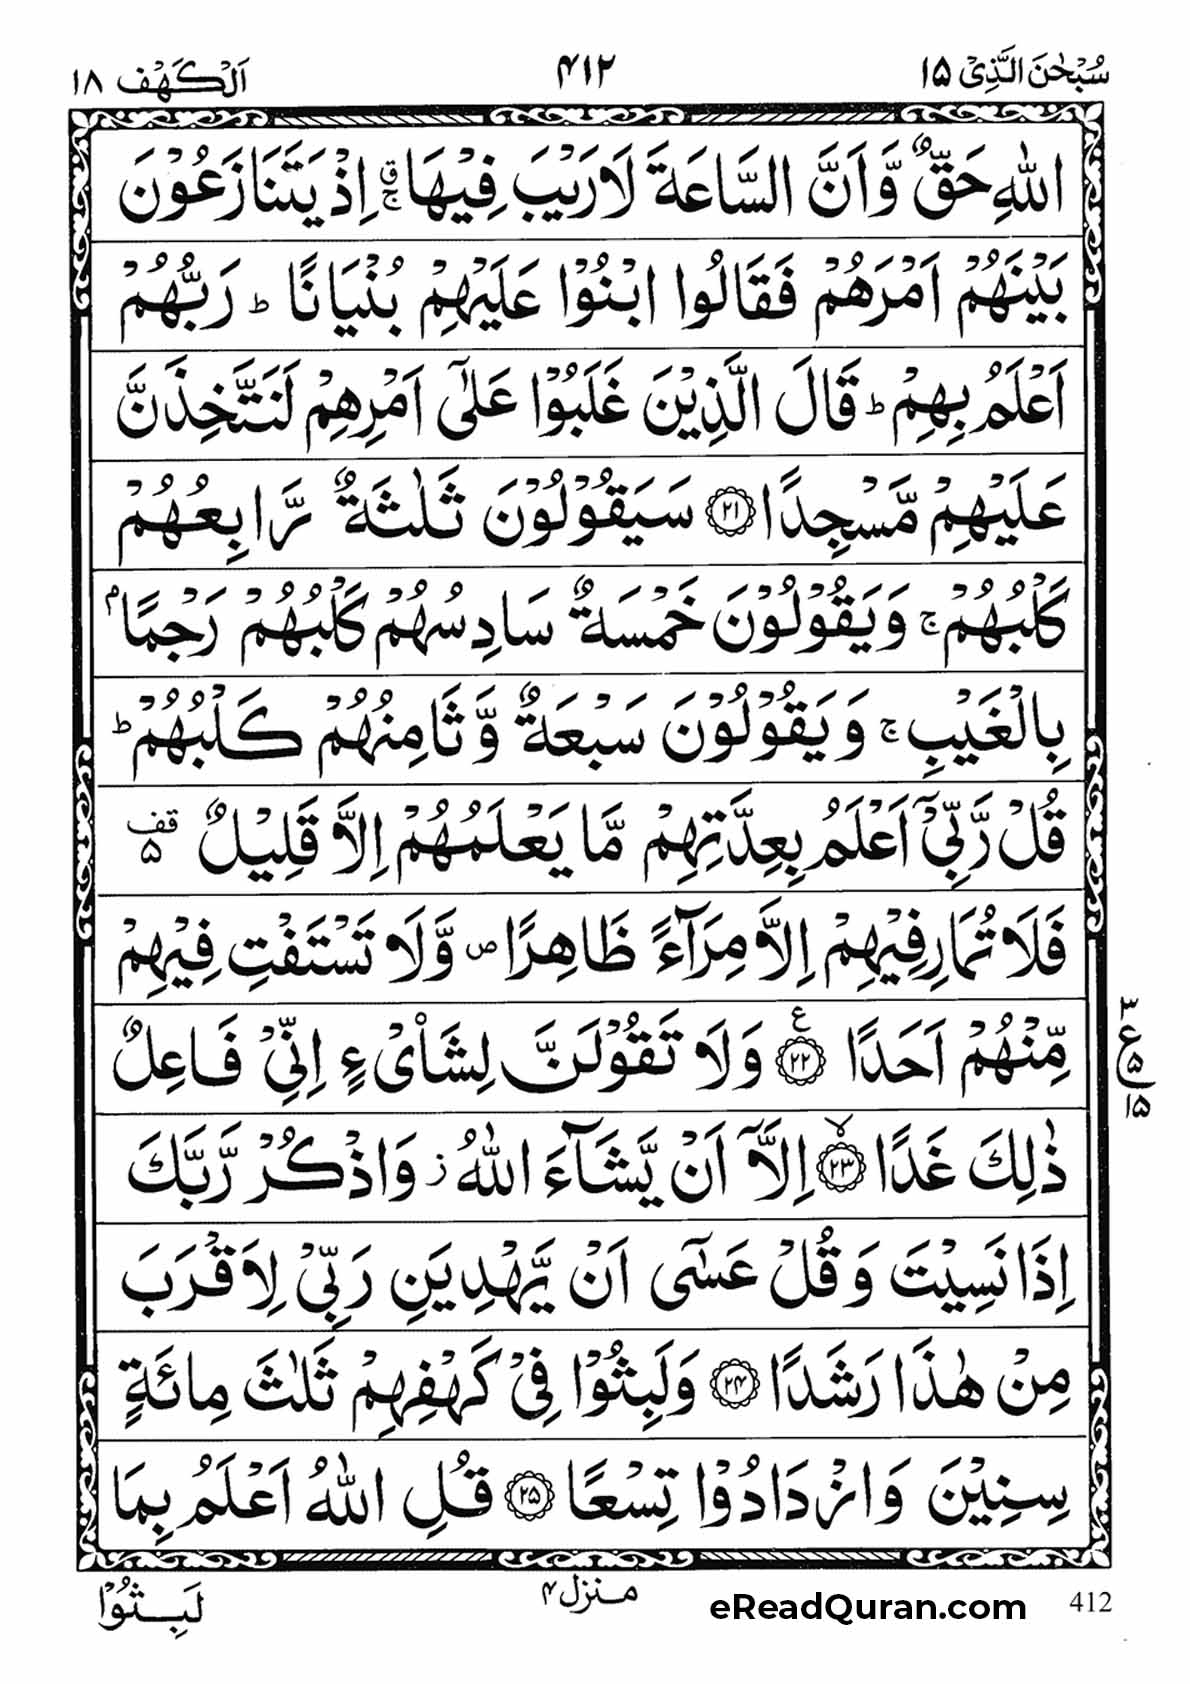 سُبْحٰنَ الَّذِیْ ١۵
۴١٢
اَلْكَهْف ١٨
اللّٰهِ حَقٌّ وَّاَنَّ السَّاعَةَ لَا رَیْبَ فِیْهَا ۚۗ اِذْ یَتَنَازَعُوْنَ
بَیْنَهُمْ اَمْرَهُمْ فَقَالُوا ابْنُوْا عَلَیْهِمْ بُنْیَانًا ؕ رَبُّهُمْ
اَعْلَمُ بِهِمْ ؕ قَالَ الَّذِیْنَ غَلَبُوْا عَلٰۤی اَمْرِهِمْ لَنَتَّخِذَنَّ
عَلَیْهِمْ مَّسْجِدًا ﴿٢١﴾ سَیَقُوْلُوْنَ ثَلٰثَةٌ رَّابِعُهُمْ
كَلْبُهُمْ ۚ وَیَقُوْلُوْنَ خَمْسَةٌ سَادِسُهُمْ كَلْبُهُمْ رَجْمًۢا
بِالْغَیْبِ ۚ وَیَقُوْلُوْنَ سَبْعَةٌ وَّثَامِنُهُمْ كَلْبُهُمْ ؕ
قُلْ رَّبِّیْۤ اَعْلَمُ بِعِدَّتِهِمْ مَّا یَعْلَمُهُمْ اِلَّا قَلِیْلٌ قف ۵
فَلَا تُمَارِ فِیْهِمْ اِلَّا مِرَآءً ظَاهِرًا ص وَّلَا تَسْتَفْتِ فِیْهِمْ
مِّنْهُمْ اَحَدًا ﴿٢٢﴾ ع وَلَا تَقُوْلَنَّ لِشَایْءٍ اِنِّیْ فَاعِلٌ
ذٰلِكَ غَدًا ﴿٢٣﴾ لا اِلَّاۤ اَنْ یَّشَآءَ اللّٰهُ ز وَاذْكُرْ رَّبَّكَ
اِذَا نَسِیْتَ وَقُلْ عَسٰۤی اَنْ یَّهْدِیَنِ رَبِّیْ لِاَقْرَبَ
مِنْ هٰذَا رَشَدًا ﴿٢۴﴾ وَلَبِثُوْا فِیْ كَهْفِهِمْ ثَلٰثَ مِائَةٍ
سِنِیْنَ وَازْدَادُوْا تِسْعًا ﴿٢۵﴾ قُلِ اللّٰهُ اَعْلَمُ بِمَا
٣
ع ۵
١۵
لَبِثُوْا
منزل ۴
eReadQuran.com
412